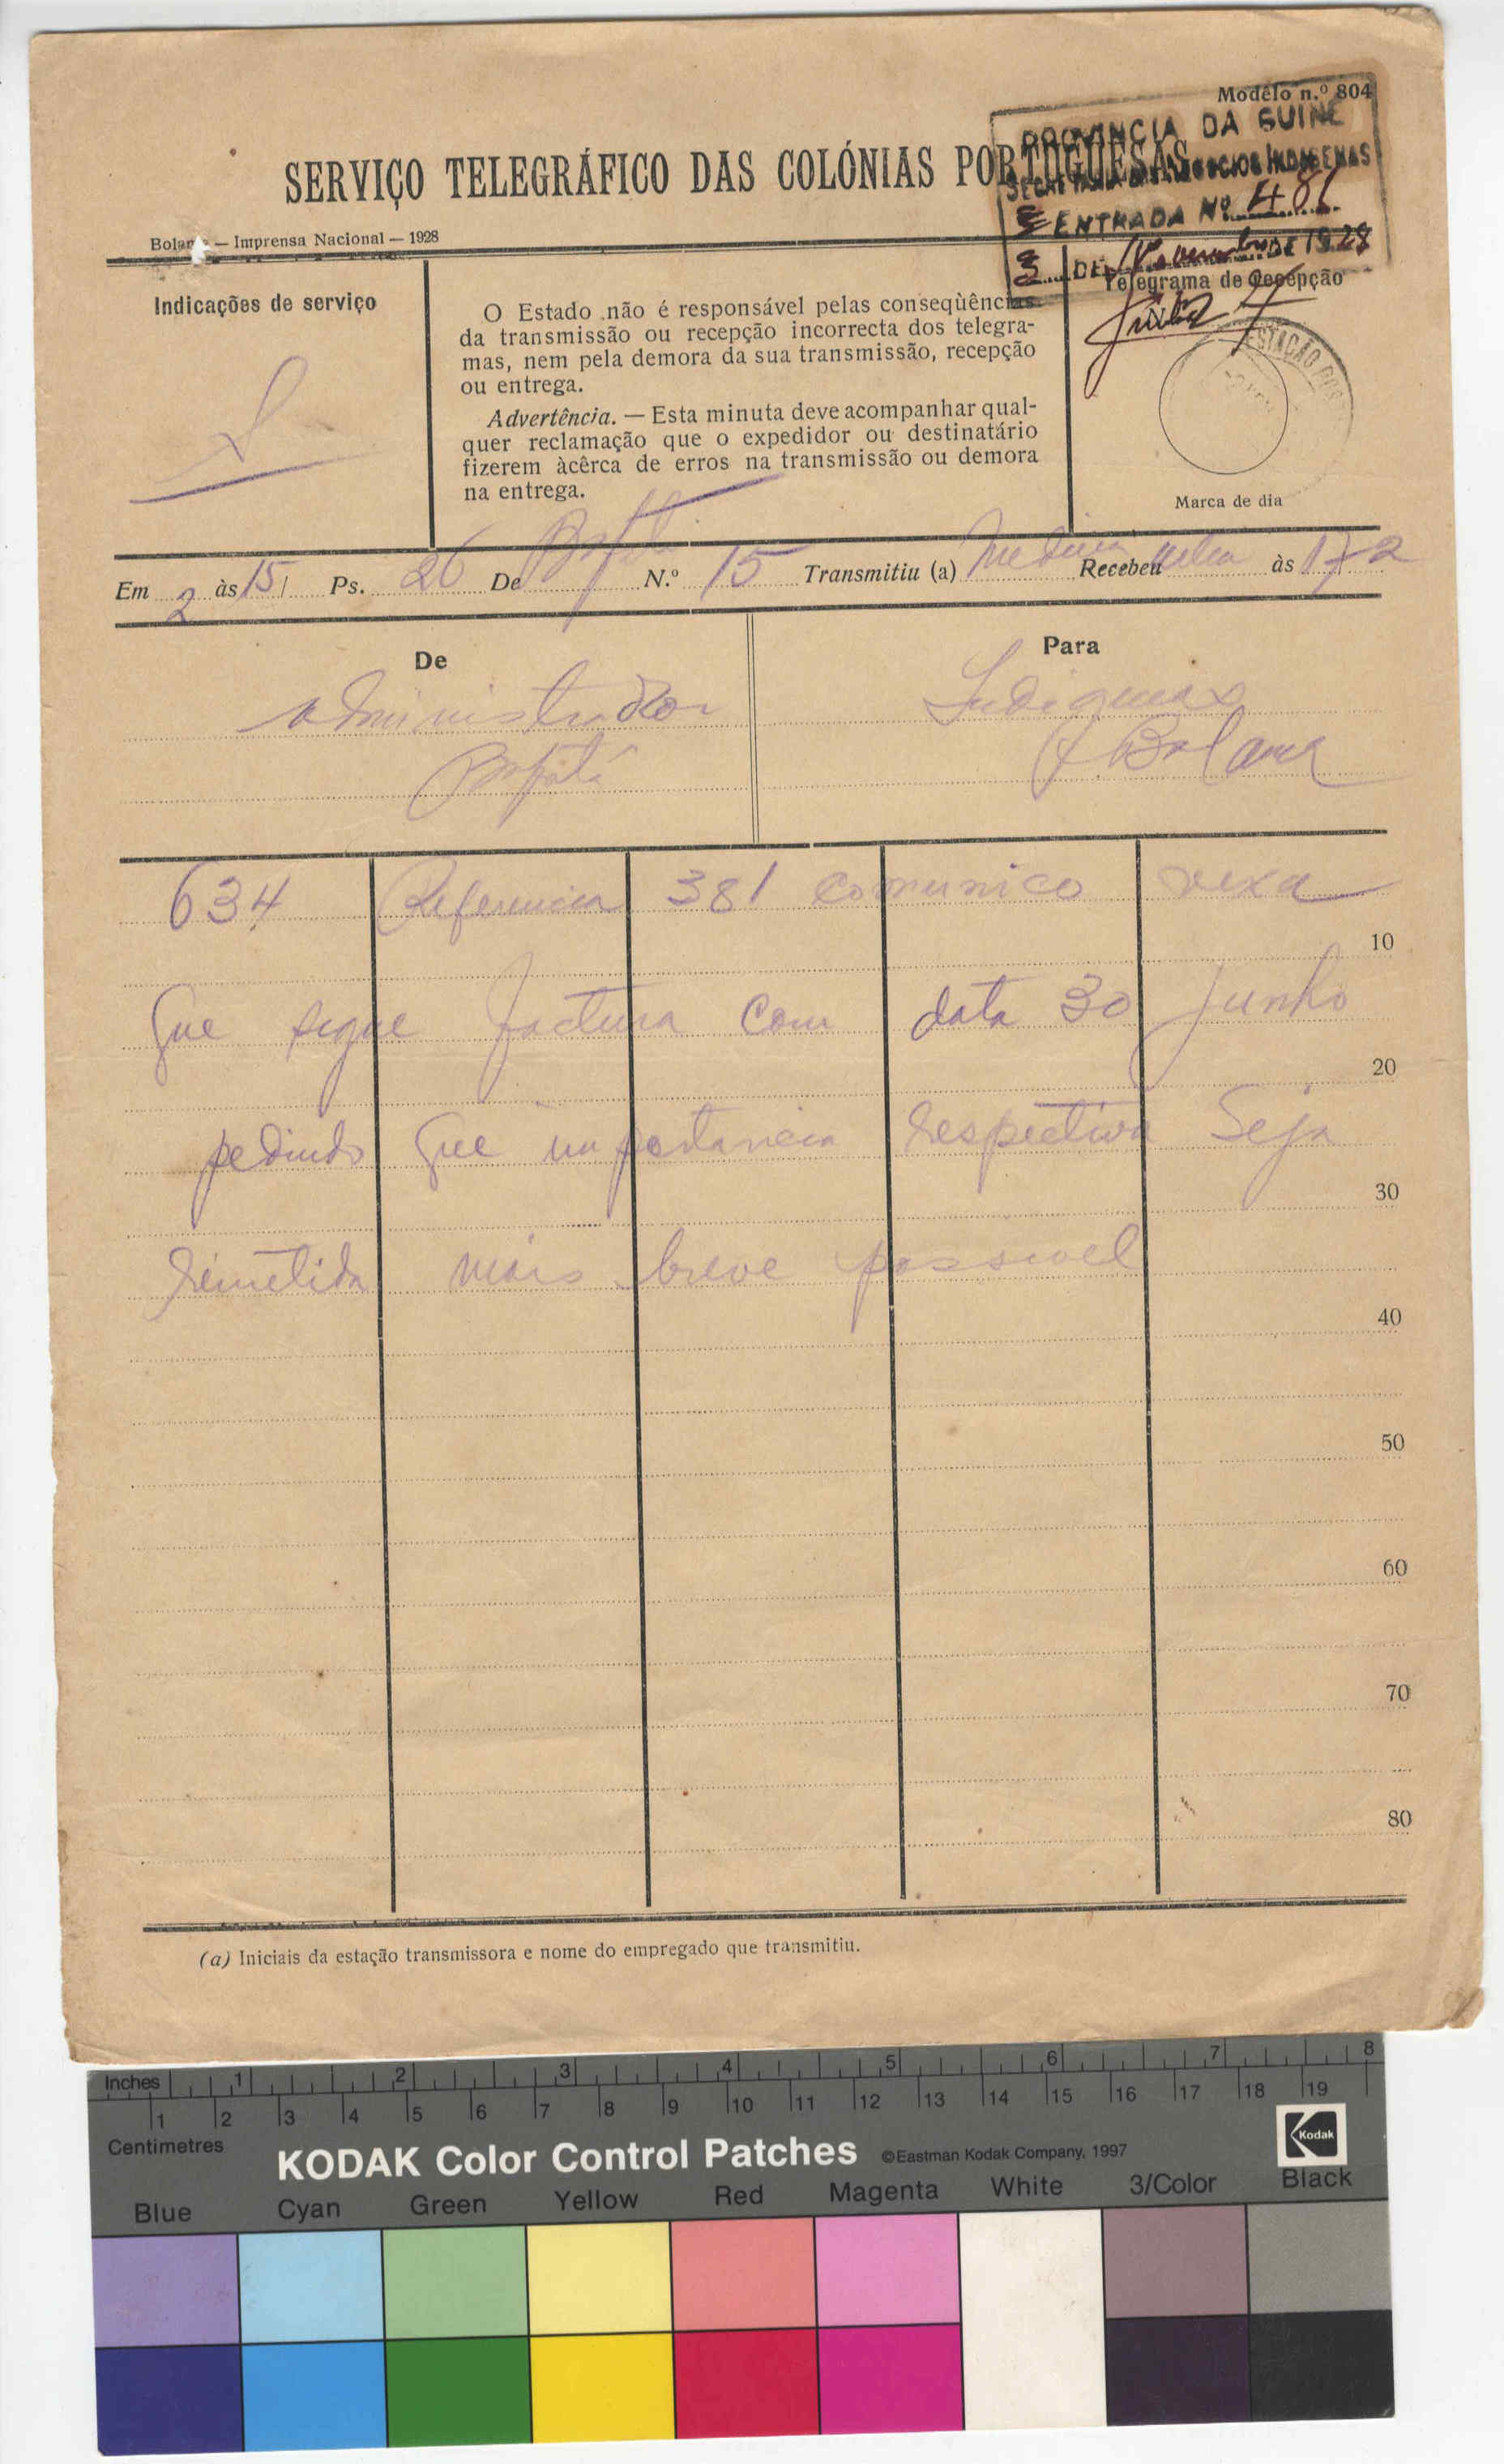 Modêlo n.º 804
PROVINCIA DA GUINÉ
SERVIÇO TELEGRÁFICO DAS COLÓNIAS PORTUGUESAS
SECRETARIA DOS NEGOCIOS INDIGENAS
ENTRADA Nº 481
Bolama — Imprensa Nacional — 1928
3 DE Novembro DE 1928
Indicações de serviço
O Estado não é responsável pelas conseqüências
da transmissão ou recepção incorrecta dos telegra-
mas, nem pela demora da sua transmissão, recepção
ou entrega.
Advertência. — Esta minuta deve acompanhar qual-
quer reclamação que o expedidor ou destinatário
fizerem àcêrca de erros na transmissão ou demora
na entrega.
Telegrama de recepção
ESTAÇÃO POS
Marca de dia
Em 2 às 15 Ps. 26 De Bafatá N.º 15 Transmitiu (a) Recebeu às 17-2
De
Administrador
Bafatá
Para
Indigenas
Bolama
634 Referencia 381 comunico vexa
10
que segue factura com data 30 Junho
20
pedindo que importancia respectiva seja
30
remetida mais breve possivel
40
50
60
70
80
(a) Iniciais da estação transmissora e nome do empregado que transmitiu.
Inches 1 2 3 4 5 6 7 8
1 2 3 4 5 6 7 8 9 10 11 12 13 14 15 16 17 18 19
Centimetres
KODAK Color Control Patches ©Eastman Kodak Company, 1997 Kodak
Blue Cyan Green Yellow Red Magenta White 3/Color Black